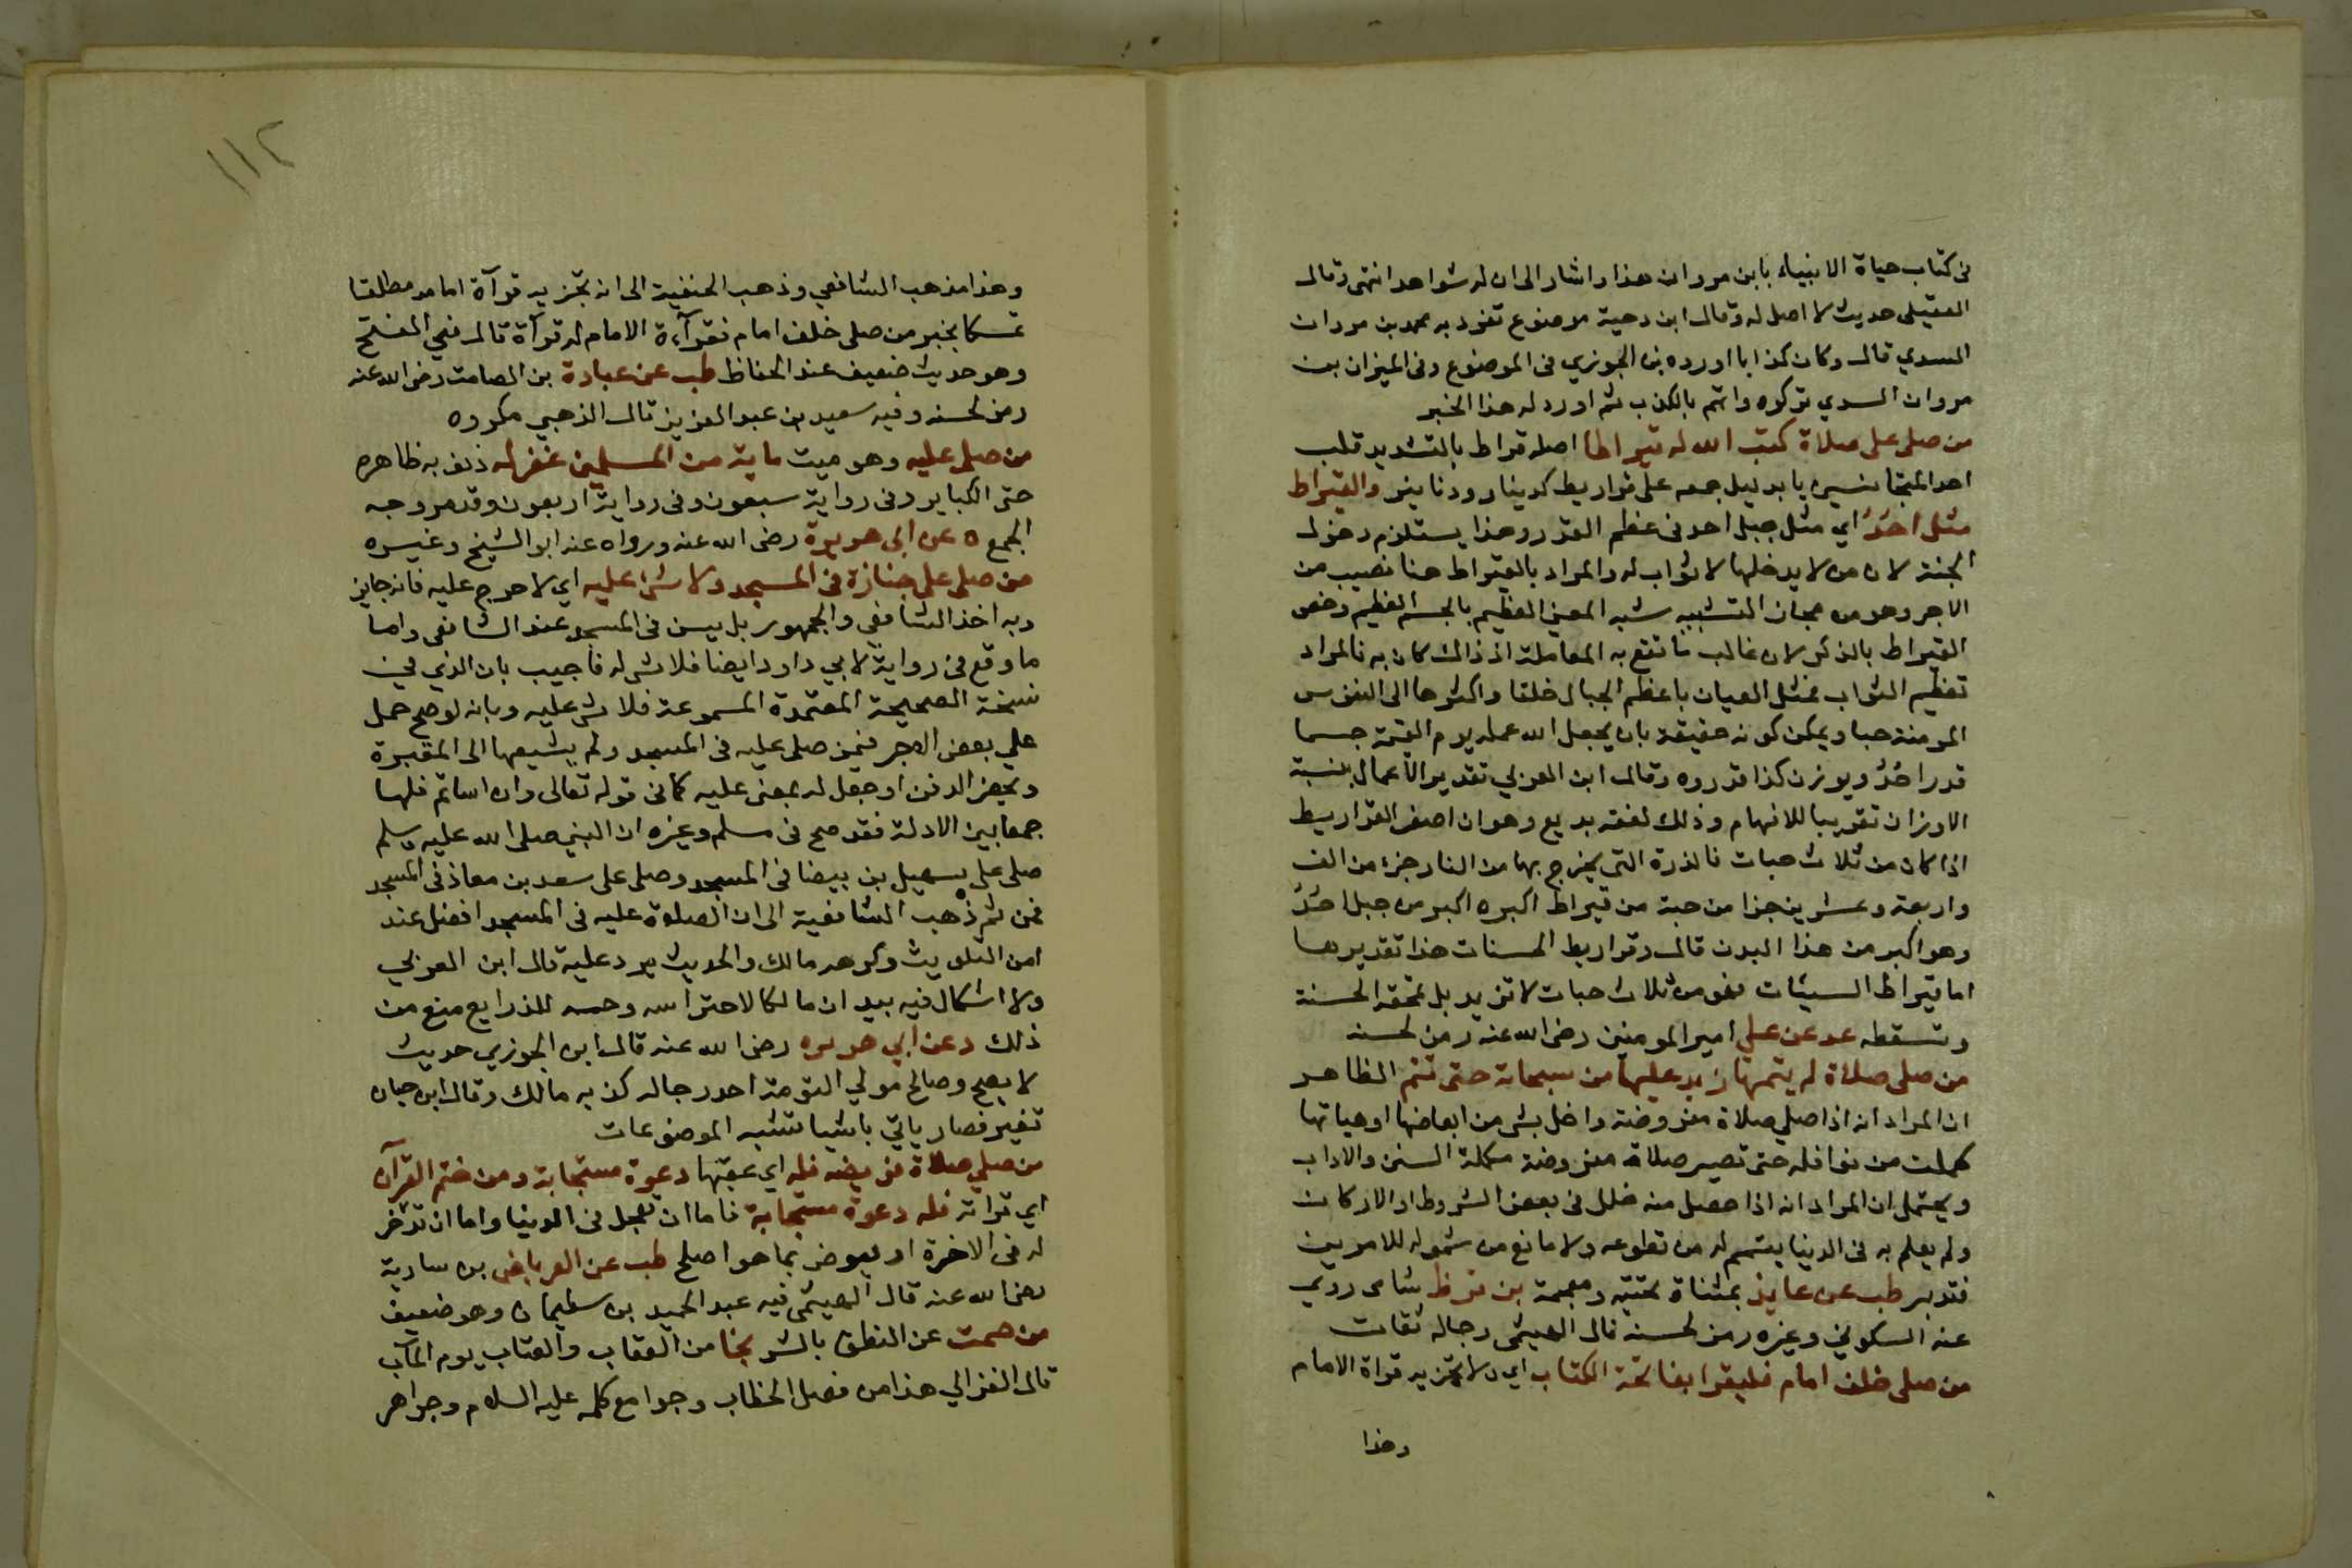 فى كتاب حياة الانبياء بابن مروان هذا واشار الى ان له شواهد انتهى وقال
العقيلى حديث لا اصل له وقال ابن دحية موضوع تفرد به محمد بن مروان
السدي قال وكان كذابا اورده بن الجوزي فى الموضوع وفى الميزان بن
مروان السدي تركوه واتهم بالكذب ثم اورد له هذا الخبر
من صلى على صلاة كتب الله له قيراطا اصله قراط بالتشديد قلب
احد المتجانسين يا بدليل جمعه على قراريط كدينار ودنانير والقيراط
مثل احُدُ اي مثل جبل احد فى عظم القدر وهذا يستلزم دخول
الجنة لان من لا يدخلها لا ثواب له والمراد بالقيراط هنا نصيب من
الاجر وهو من مجاز التشبيه شبه المعنى العظيم بالجسم العظيم وخص
القيراط بالذكر لان غالب ما تقع به المعاملة اذ ذاك كان به فالمراد
تعظيم الثواب فمثل العيان باعظم الجبال خلقا واكثرها الى النفوس
المومنة حبا ويمكن كونه حقيقة بان يجعل الله عمله يوم القيمة جسما
قدر احُدُ ويوزن كذا قدروه وقال ابن العربي تقدير الاعمال بنسبة
الاوزان تقريبا للافهام وذلك لفقه بديع وهو ان اصغر القراريط
اذا كان من ثلاث حبات فالذرة التى يخرج بها من النار جزء من الف
واربعة وعشرين جزا من حبة من قيراط اكبره اكبر من جبل احُدُ
وهو اكبر من هذا البدن قال وقراريط الحسنات هذا تقديرها
اما قيراط السيئات فهو من ثلاث حبات لا تزيد بل تمحقه الحسنة
وتسقطه عد عن على امير المومنين رضى الله عنه رمز لحسنه
من صلى صلاة لم يتمها زيد عليها من سبحاته حتى تتم الظاهر
ان المراد انه اذا صلى صلاة مفروضة واخل بشى من ابعاضها او هياتها
كملت من نوافله حتى تصير صلاة مفروضة مكملة السنن والاداب
ويحتمل ان المراد انه اذا حصل منه خلل فى بعض الشروط او الاركان
ولم يعلم به فى الدنيا يتمم له من تطوعه ولا مانع من شموله للامرين
فتدبر طب عن عايذ بمثناة تحتية ومعجمة بن قرظ شامى روي
عنه السكوني وغيره رمز لحسنه قال الهيثمى رجاله ثقات
من صلى خلف امام فليقرا بفاتحة الكتاب اي ولا تجزيه قراة الامام
وهذا
١١٢
وهذا مذهب الشافعي وذهب الحنفية الى انه تجزيه قرآة امامه مطلقا
تمسكا بخبر من صلى خلف امام فقرآءة الامام له قرآة قال فى الفتح
وهو حديث ضعيف عند الحفاظ طب عن عبادة بن الصامت رضى الله عنه
رمز لحسنه وفيه سعيد بن عبد العزيز قال الذهبي مكروه
من صلى عليه وهو ميت ماية من المسلمين غفر له ذنوبه ظاهره
حتى الكباير وفى رواية سبعون وفى رواية اربعون وقد مر وجه
الجمع ه عن ابى هريرة رضى الله عنه ورواه عنه ابو الشيخ وغيره
من صلى على جنازة فى المسجد فلا شى عليه اي لا حرج عليه فانه جايز
وبه اخذ الشافعي والجمهور بل يسن فى المسجد عند الشافعى واما
ما وقع فى رواية لابي داود ايضا فلا شى له فاجيب بان الذي في
نسخة الصحيحة المعتمدة المسموعة فلا شى عليه وبانه لو صح حمل
على بعض الاجر فيمن صلى عليه فى المسجد ولم يشيعها الى المقبرة
ويحضر الدفن او جعل له بمعنى عليه كما فى قوله تعالى وان اساتم فلها
جمعا بين الادلة فقد صح فى مسلم وغيره ان النبي صلى الله عليه وسلم
صلى على سهيل بن بيضا فى المسجد وصلى على سعد بن معاذ فى المسجد
فمن ثم ذهب الشافعية الى ان الصلوة عليه فى المسجد افضل عند
امن التلويث وكرهه مالك والحديث يرد عليه قال ابن العربي
ولا اشكال فيه بيد ان مالكا لاحتراسه وحسمه للذرايع منع من
ذلك د عن ابي هريره رضى الله عنه قال ابن الجوزي حديث
لا يصح وصالح مولي التومة احد رجاله كذبه مالك وقال ابن حبان
تغير فصار ياتي باشيا تشبه الموضوعات
من صلي صلاة فريضه فله اي عقبها دعوة مستجابة ومن ختم القرآن
اي قراته فله دعوة مستجابة فاما ان تعجل فى الدنيا واما ان تدخر
له فى الاخرة او يعوض بما هو اصلح طب عن العرباض بن سارية
رضى الله عنه قال الهيثمى فيه عبد الحميد بن سليمان وهو ضعيف
من صمت عن النطق بالشر نجا من العقاب والعتاب يوم المآب
قال الغزالي هذا من فصل الخطاب وجوامع كلمه عليه السلام وجواهر